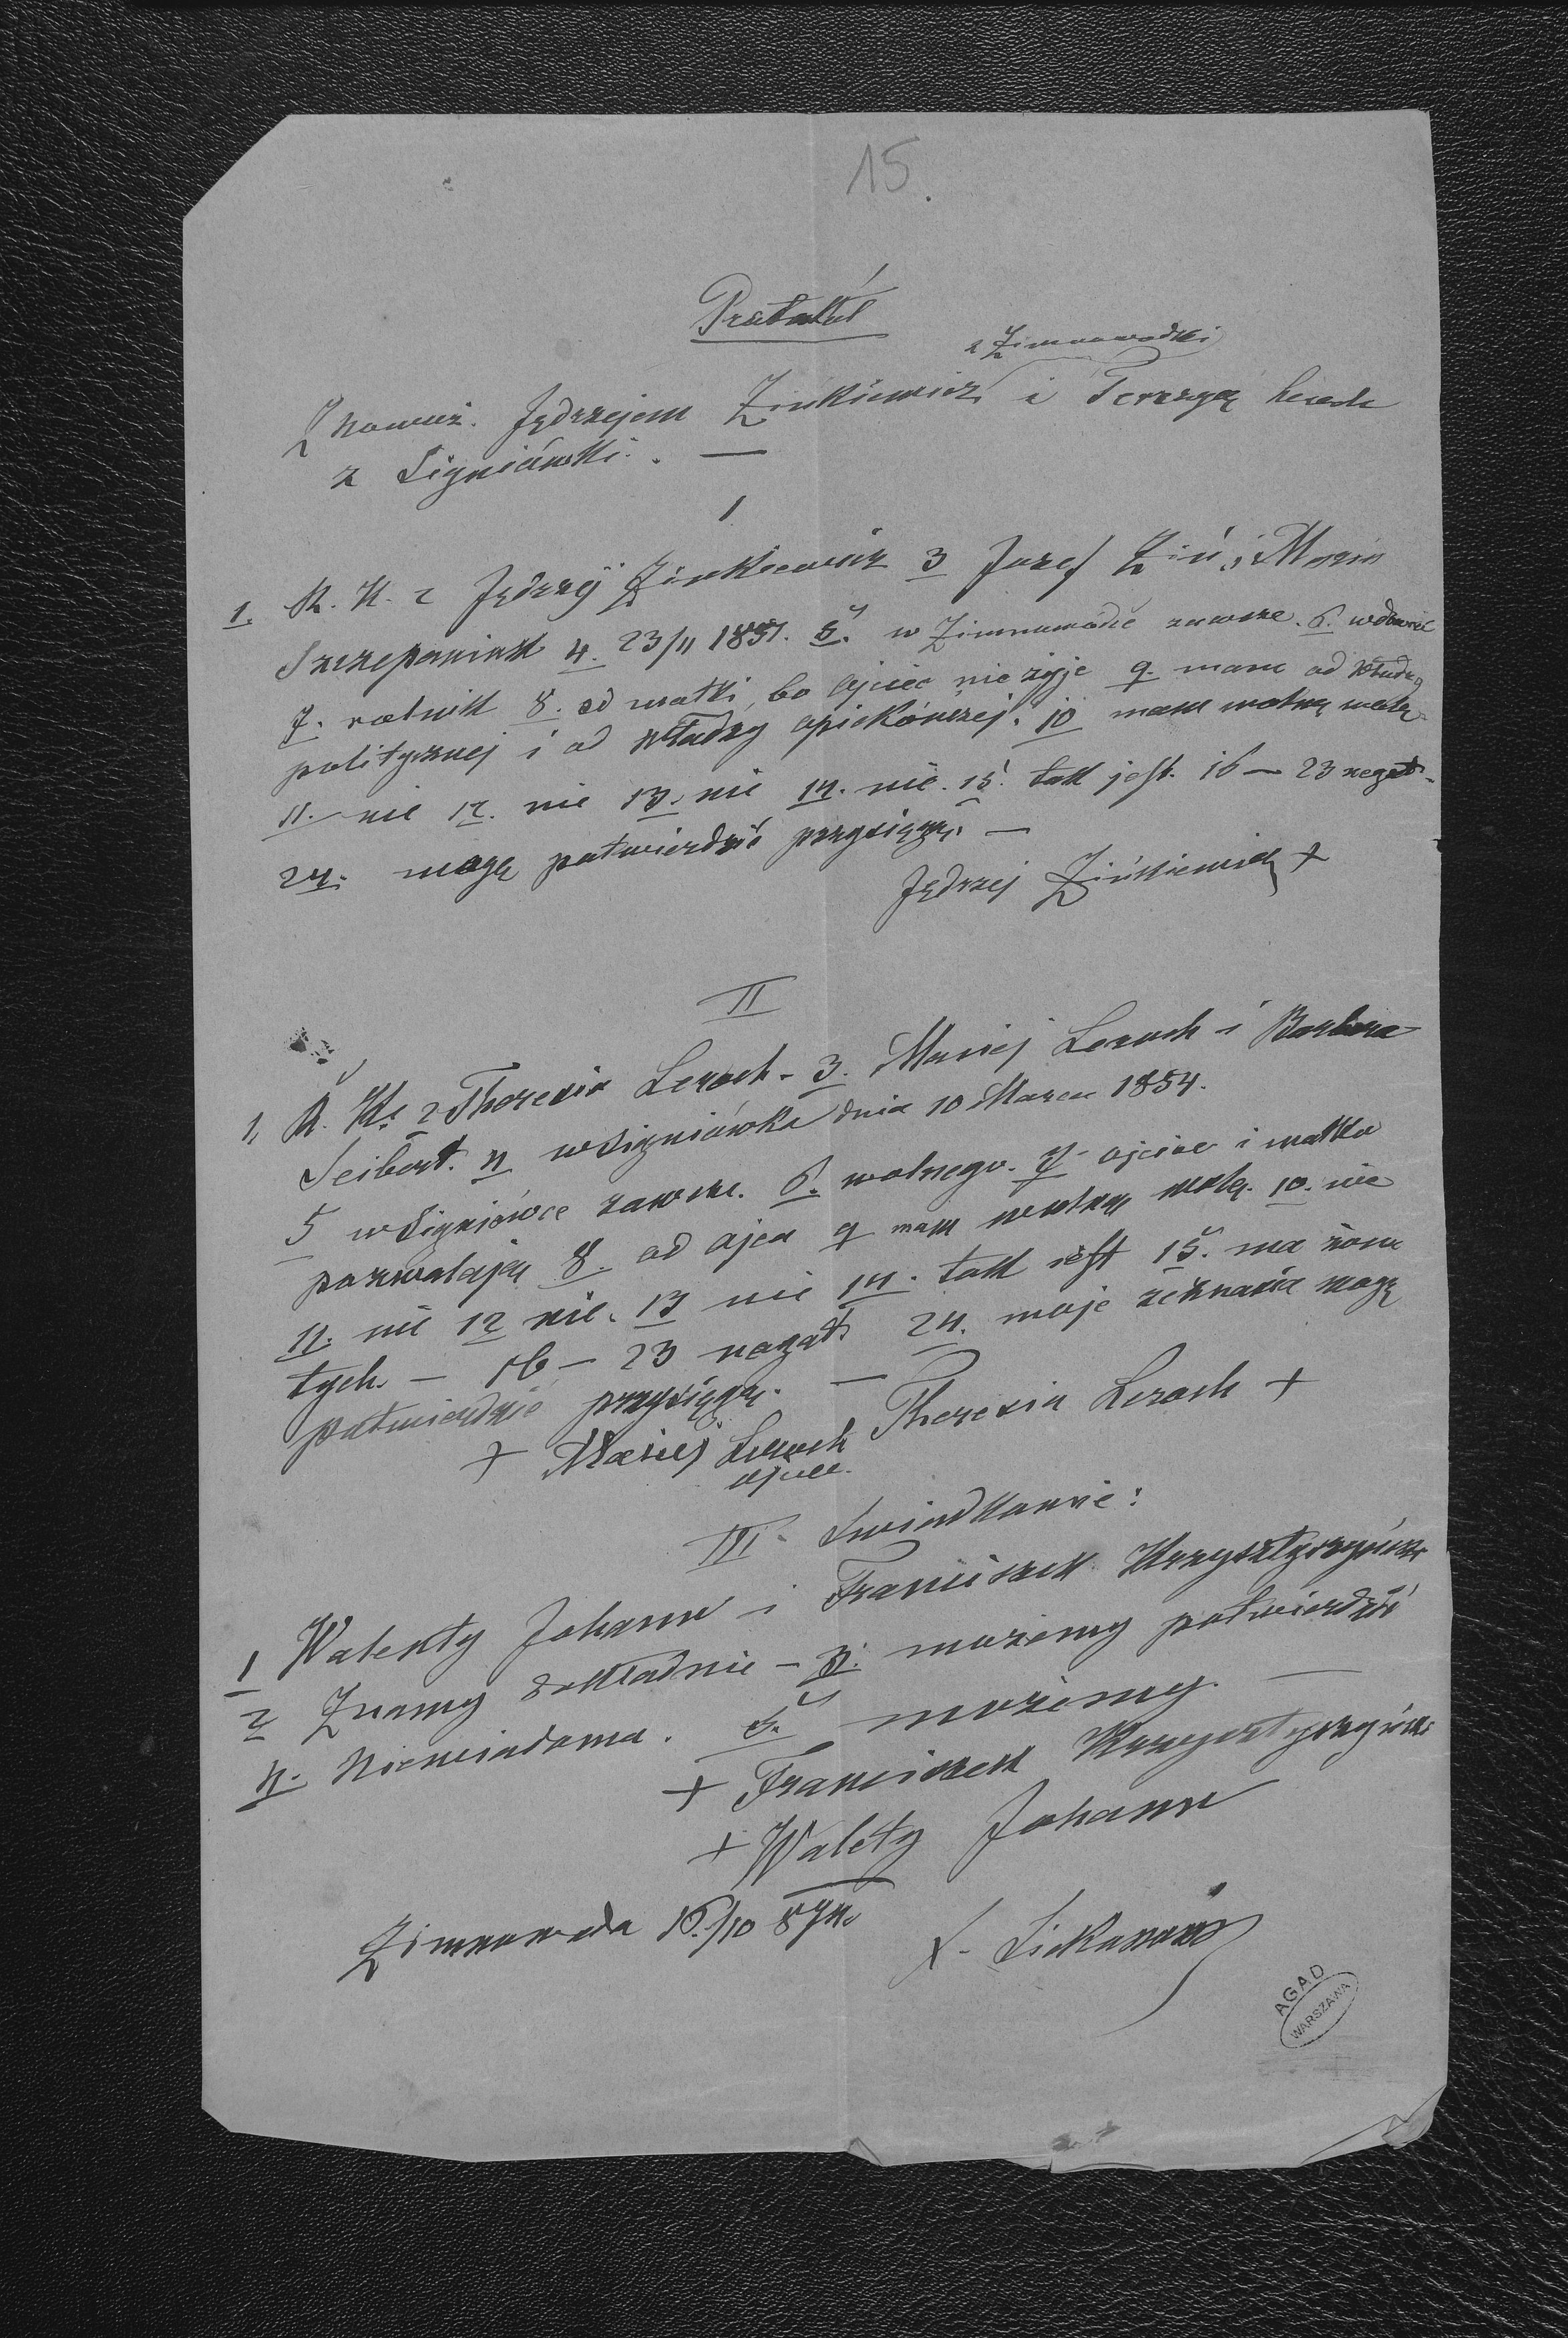 15.
Protokół
z Zimnowodki
Z Narzecz. Jędrzejem Zinkiewicz i Terezyą Lerach
z Signiówki. —
I
1. R. K. 2 Jędrzej Zinkiewicz 3 Jozef Zin. i Maria
Szczepaniak 4. 23/11 1851. 5. w Zimnowodce zawsze. 6. wdowiec
7. rolnik 8. od matki, bo ojciec nie żyje 9. mam od władzy
politycznej i od władzy opiekóńczej. 10 mam wolną wolę
11. nie 12. nie 13. nie 14. nie. 15. tak jest. 16 — 23 negat.
24. mogę potwierdzić przysięgą. —
Jędrzej Zinkiewicz +
II
1, R. K. 2 Theresia Lerach - 3. Maciej Lerach i Barbara
Seibert. 4 w Signiówka dnia 10 Marca 1854.
5 w Signiówce zawsze. 6. wolnego. 7. ojciec i matka
pozwalają 8. od ojca 9 mam wolną wolę. 10. nie
11. nie 12 nie. 13 nie 14. tak jest 15. ma
tych. — 16 — 23 negat. 24. moje zeznania mogę
potwierdzić przysięgą. —
Theresia Lerach +
+ Maciej Lerach
ojciec.
III. Swiadkowie:
1 Walenty Johann i Franciszek
2 Znamy dokładnie — 3. możemy potwierdzić
4. Niewiadoma. 5. możemy. —
+ Franciszek
+ Walety Johann
Zimnowoda 16./10 874.
AGAD
WARSZAWA